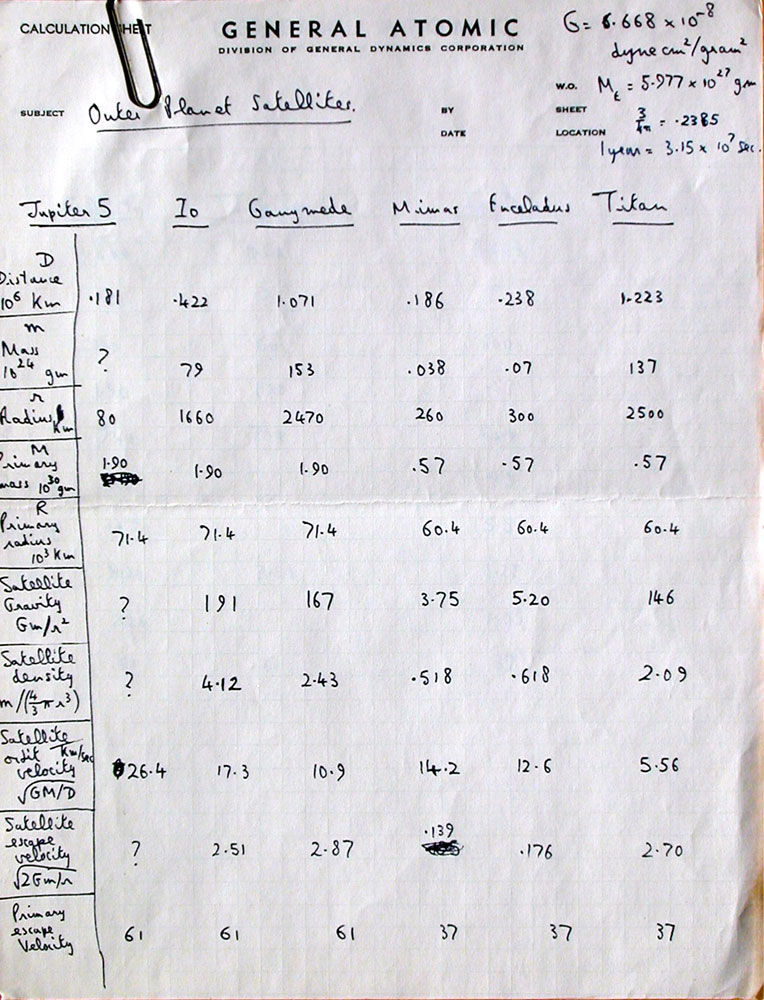 CALCULATION SHEET
GENERAL ATOMIC
DIVISION OF GENERAL DYNAMICS CORPORATION
G = 6.668 × 10⁻⁸
dyne cm²/gram²
W.O. M_E = 5.977 × 10²⁷ gm
SUBJECT Outer Planet Satellites. BY SHEET 3/4π = .2385
DATE LOCATION 1 year = 3.15 × 10⁷ sec.
Jupiter 5 Io Ganymede Mimas Enceladus Titan
D
Distance
10⁶ Km .181 .422 1.071 .186 .238 1.223
m
Mass
10²⁴ gm ? 79 153 .038 .07 137
r
Radius Km 80 1660 2470 260 300 2500
M
Primary
mass 10³⁰ gm 1.90 1.90 1.90 .57 .57 .57
R
Primary
radius
10³ Km 71.4 71.4 71.4 60.4 60.4 60.4
Satellite
Gravity
Gm/r² ? 191 167 3.75 5.20 146
Satellite
density
m/(4/3 π r³) ? 4.12 2.43 .518 .618 2.09
Satellite
orbit Km/sec
velocity
√GM/D 26.4 17.3 10.9 14.2 12.6 5.56
Satellite
escape
velocity
√2Gm/r ? 2.51 2.87 .139 .176 2.70
Primary
escape
Velocity 61 61 61 37 37 37